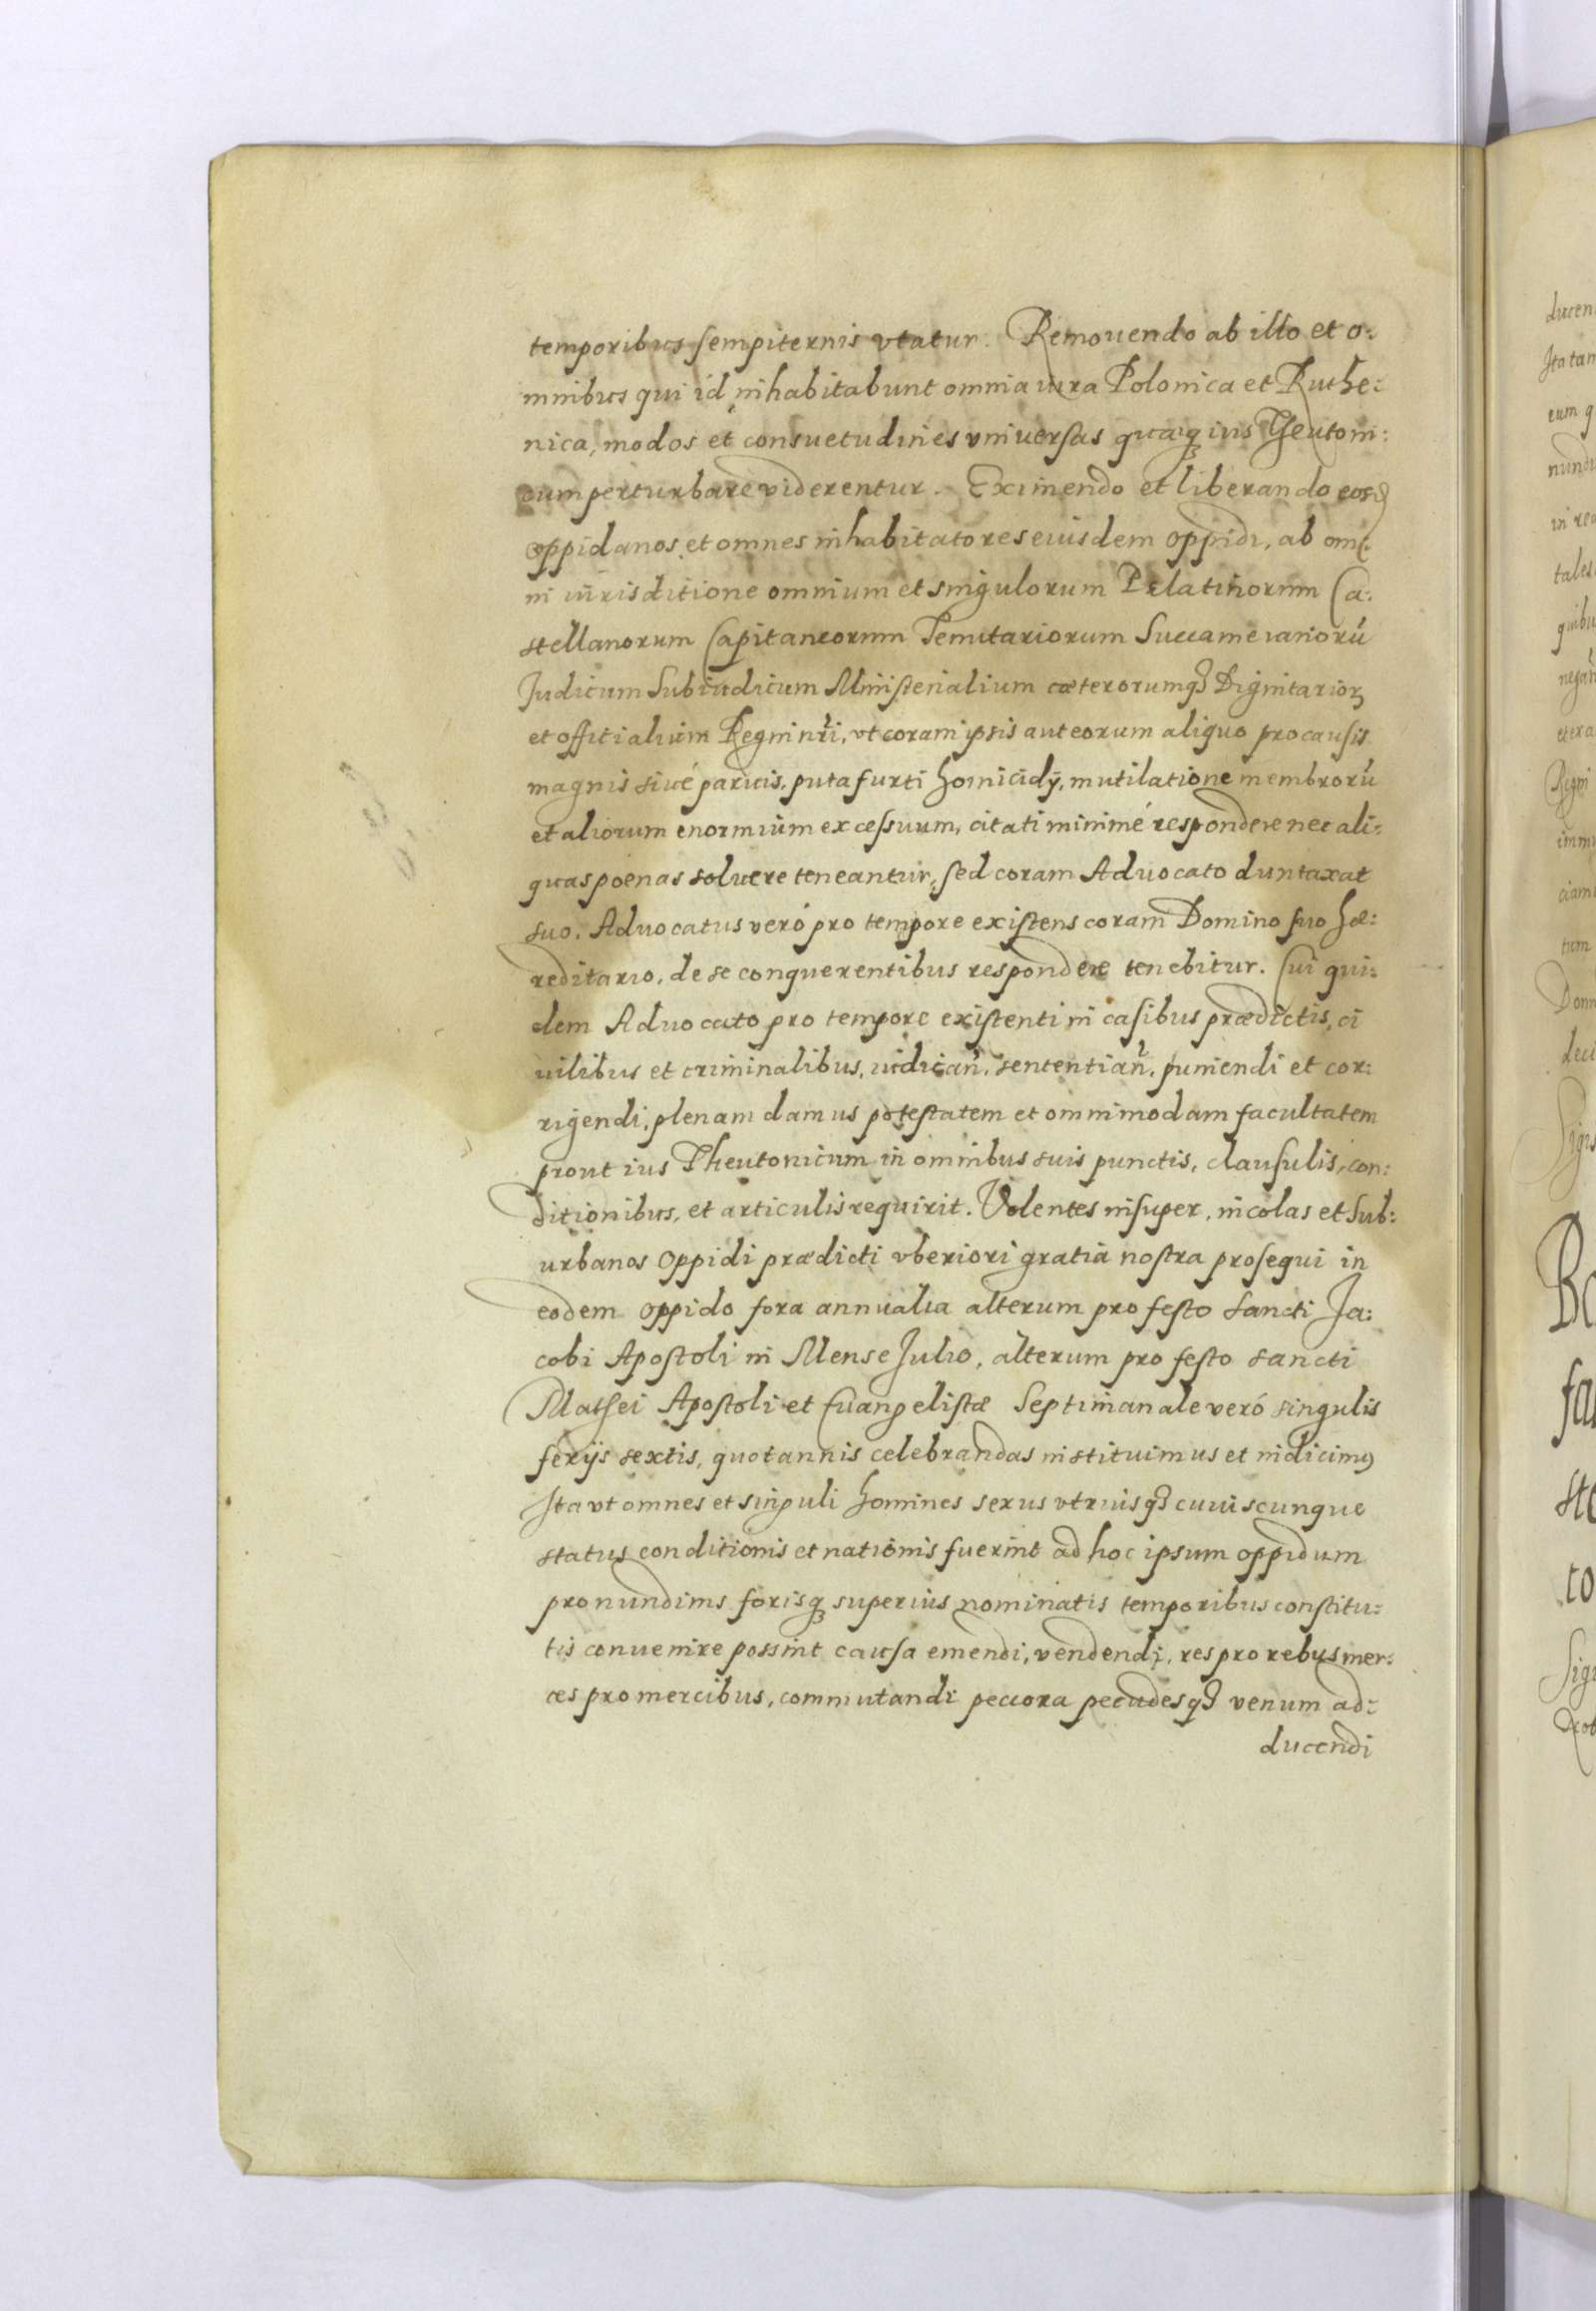 temporibus sempiternis vtatur. Remouendo ab illo et o:
mnibus qui id inhabitabunt omnia iura Polonica et Ruthe:
nica, modos et consuetudines vniuersas quæq3 ius Theutoni:
cum perturbare viderentur. Eximendo et liberando eosd
oppidanos et omnes inhabitatores eiusdem oppidi, ab om:
ni iurisditione omnium et singulorum Palatinorum Ca:
stellanorum Capitaneorum Tenutariorum Succamerarioru
Judicum Subiudicum Ministerialium cæterorumq3 Dignitarior
et offitialium Regni nri, vt coram ipsis aut eorum aliquo pro causis
magnis siué paruis, puta furti homicidÿ, mutilatione membroru
et aliorum enormium excessuum, citati minimé respondere nec ali:
quas poenas soluere teneantur, sed coram Aduocato duntaxat
suo. Aduocatus veró pro tempore existens coram Domino suo hæ:
reditario, de se conquerentibus respondere tenebitur. Cui qui:
dem Aduocato pro tempore existenti in casibus prædictis, ci
uilibus et criminalibus, iudican, sententian, puniendi et cor:
rigendi, plenam damus potestatem et omnimodam facultatem
prout ius Theutonicum in omnibus suis punctis, clausulis, con:
ditionibus, et articulis requirit. Volentes insuper, incolas et Sub:
urbanos oppidi prædicti vberiori gratia nostra prosequi in
eodem oppido fora annualia alterum pro festo Sancti Ja:
cobi Apostoli in Mense Julio, alterum pro festo sancti
Mathei Apostoli et Euangelistæ Septimanale veró singulis
ferijs sextis, quotannis celebrandas instituimus et indicimus
Ita vt omnes et singuli homines sexus vtriusq3 cuiuscunque
status conditionis et nationis fuerint ad hoc ipsum oppidum
pro nundinis forisq3 superius nominatis temporibus constitu:
tis conuenire possint causa emendi, vendendi, res pro rebus mer:
ces pro mercibus, commutandi peccora pecudesq3 venum ad:
ducendi